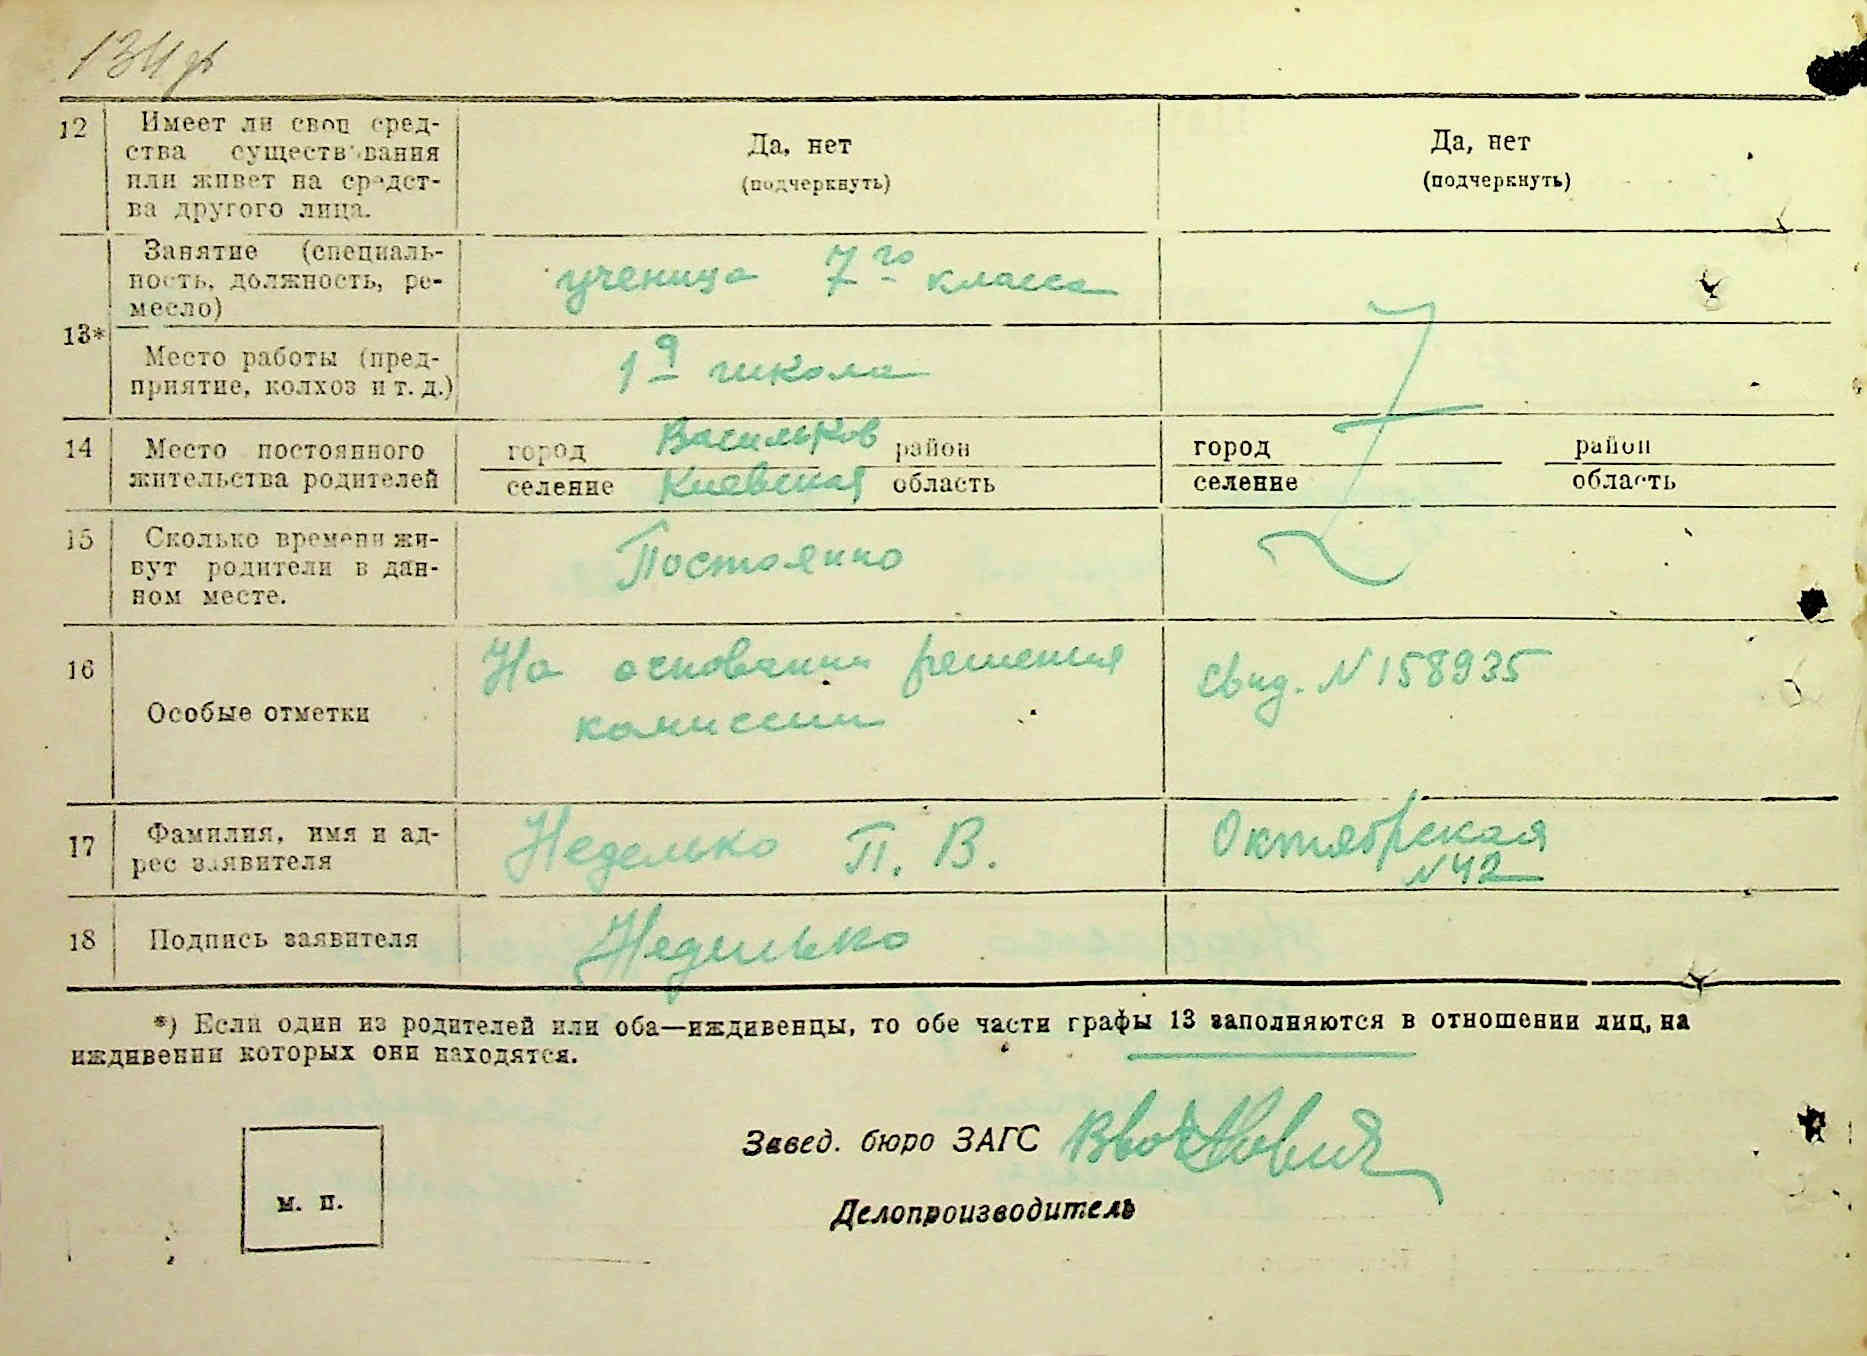 134
12 Имеет ли свои сред-
ства существования
или живет на средст-
ва другого лица.
Да, нет
(подчеркнуть)
Да, нет
(подчеркнуть)
13*
Занятие (специаль-
ность, должность, ре-
месло)
ученица 7го класса
Место работы (пред-
приятие, колхоз и т. д.)
1я школа
14 Место постоянного
жительства родителей
город Васильков район
селение Киевская область
город район
селение область
15 Сколько времени жи-
вут родители в дан-
ном месте.
Постоянно
16 Особые отметки
На основании решения
комиссии
Свид. N 158935
17 Фамилия, имя и ад-
рес заявителя
Неделько П. В.
Октябрская
N 42
18 Подпись заявителя
Неделько
*) Если один из родителей или оба—иждивенцы, то обе части графы 13 заполняются в отношении лиц, на
иждивении которых они находятся.
Завед. бюро ЗАГС
Делопроизводитель
м. п.